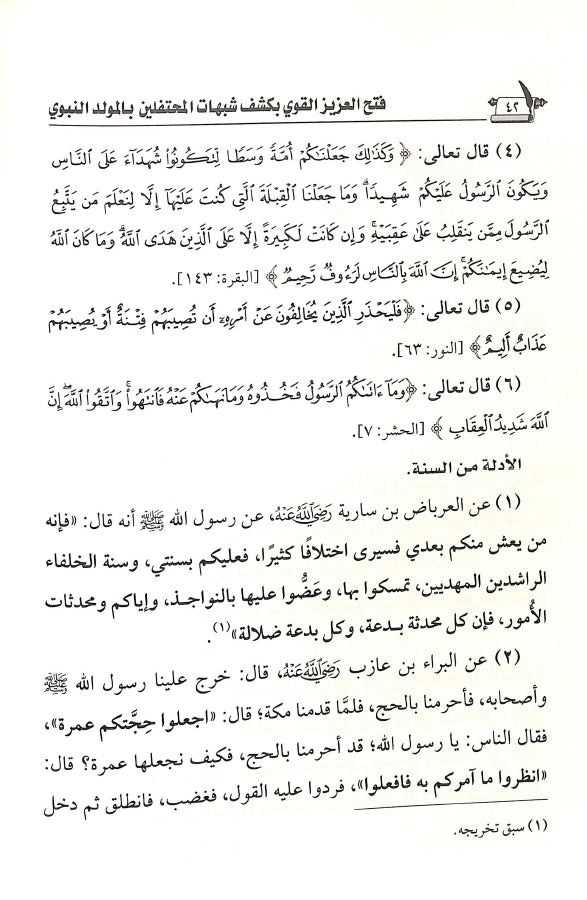 ٤٢
فتح العزيز القوي بكشف شبهات المحتفلين بالمولد النبوي
(٤) قال تعالى: ﴿ وَكَذَٰلِكَ جَعَلْنَاكُمْ أُمَّةً وَسَطًا لِّتَكُونُوا۟ شُهَدَآءَ عَلَى ٱلنَّاسِ
وَيَكُونَ ٱلرَّسُولُ عَلَيْكُمْ شَهِيدًا ۗ وَمَا جَعَلْنَا ٱلْقِبْلَةَ ٱلَّتِى كُنتَ عَلَيْهَآ إِلَّا لِنَعْلَمَ مَن يَتَّبِعُ
ٱلرَّسُولَ مِمَّن يَنقَلِبُ عَلَىٰ عَقِبَيْهِ ۚ وَإِن كَانَتْ لَكَبِيرَةً إِلَّا عَلَى ٱلَّذِينَ هَدَى ٱللَّهُ ۗ وَمَا كَانَ ٱللَّهُ
لِيُضِيعَ إِيمَـٰنَكُمْ ۚ إِنَّ ٱللَّهَ بِٱلنَّاسِ لَرَءُوفٌ رَّحِيمٌ ﴾ [البقرة: ١٤٣].
(٥) قال تعالى: ﴿فَلْيَحْذَرِ ٱلَّذِينَ يُخَالِفُونَ عَنْ أَمْرِهِۦٓ أَن تُصِيبَهُمْ فِتْنَةٌ أَوْ يُصِيبَهُمْ
عَذَابٌ أَلِيمٌ﴾ [النور: ٦٣].
(٦) قال تعالى: ﴿وَمَآ ءَاتَىٰكُمُ ٱلرَّسُولُ فَخُذُوهُ وَمَا نَهَىٰكُمْ عَنْهُ فَٱنتَهُوا۟ ۚ وَٱتَّقُوا۟ ٱللَّهَ ۖ إِنَّ
ٱللَّهَ شَدِيدُ ٱلْعِقَابِ ﴾ [الحشر: ٧].
الأدلة من السنة.
(١) عن العرباض بن سارية رَضِيَ اللَّهُ عَنْهُ، عن رسول الله ﷺ أنه قال: «فإنه
من يعش منكم بعدي فسيرى اختلافًا كثيرًا، فعليكم بسنتي، وسنة الخلفاء
الراشدين المهديين، تمسكوا بها، وعَضُّوا عليها بالنواجذ، وإياكم ومحدثات
الأُمور، فإن كل محدثة بـدعة، وكل بدعة ضلالة»(١).
(٢) عن البراء بن عازب رَضِيَ اللَّهُ عَنْهُ، قال: خرج علينا رسول الله ﷺ
وأصحابه، فأحرمنا بالحج، فلمَّا قدمنا مكة؛ قال: «اجعلوا حِجَّتكم عمرة»،
فقال الناس: يا رسول الله؛ قد أحرمنا بالحج، فكيف نجعلها عمرة؟ قال:
«انظروا ما آمركم به فافعلوا»، فردوا عليه القول، فغضب، فانطلق ثم دخل
(١) سبق تخريجه.